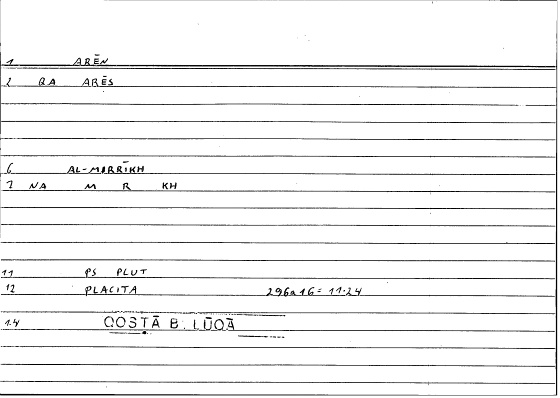 1 ARĒN
2 QA ARĒS
6 AL-MIRRĪKH
7 NA M R KH
11 PS PLUT
12 PLACITA 296a16 = 11.24
14 QOSṬĀ B. LŪQĀ